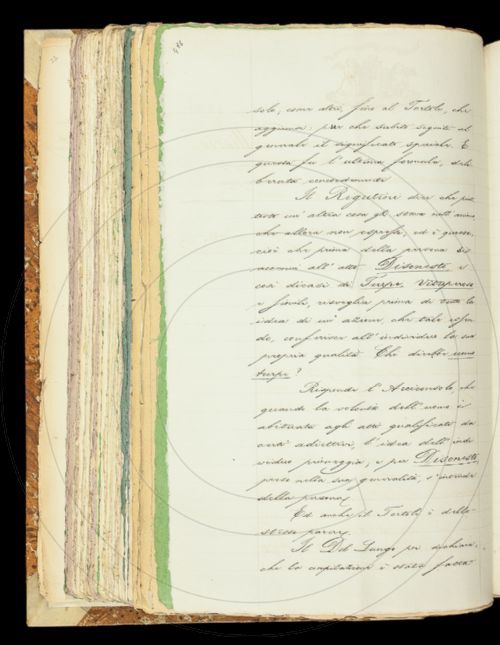 solo, come altri, fino al Tortoli, che
aggiunse, par che subito seguiti al
generale il significato speciale. E
questa fu l'ultima formula, deli-
berata concordemente
Il Rigutini dice che piut-
tosto un' altra cosa gli stava nell' animo
che allora non espresse, ed è questa,
cioè che prima della persona si
all' atto. Disonesto, e
così dicasi di Turpe, Vituperoso
e simili, risveglia prima di tutto la
idea di un' azione, che tale essen-
do, conferisce all' individuo la sua
propria qualità. Che direbbe uomo
turpe?
Risponde l' Arciconsolo, che
quando la volontà dell' uomo è
abituata agli atti qualificati da
certi adiettivi, l' idea dell' indi-
viduo primeggia, e per Disonesto,
preso nella sua generalità, s' intende
della persona.
Ed anche il Tortoli è dello
stesso parere.
Il Del Lungo poi dichiara,
che la compilazione è stata fatta